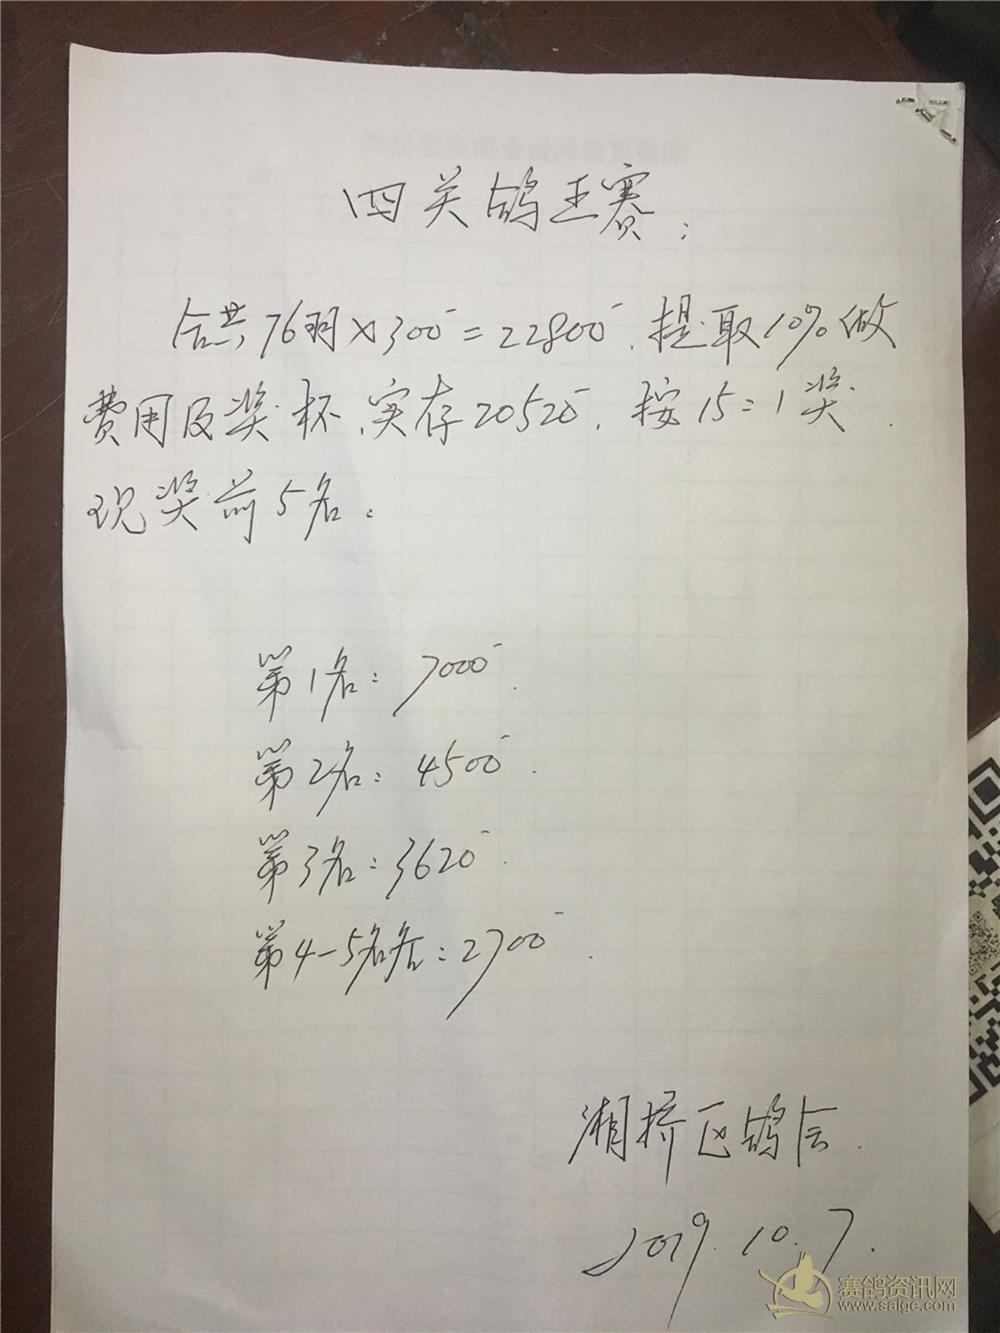 四关鸽王赛:
合共76羽×300=22800.提取10%做
费用及奖杯、实存20520.按15:1奖.
现奖前5名:
第1名:7000.
第2名:4500.
第3名:3620.
第4-5名各:2700.
湘桥区鸽会.
2019.10.7.
赛鸽资讯网
www.saige.com